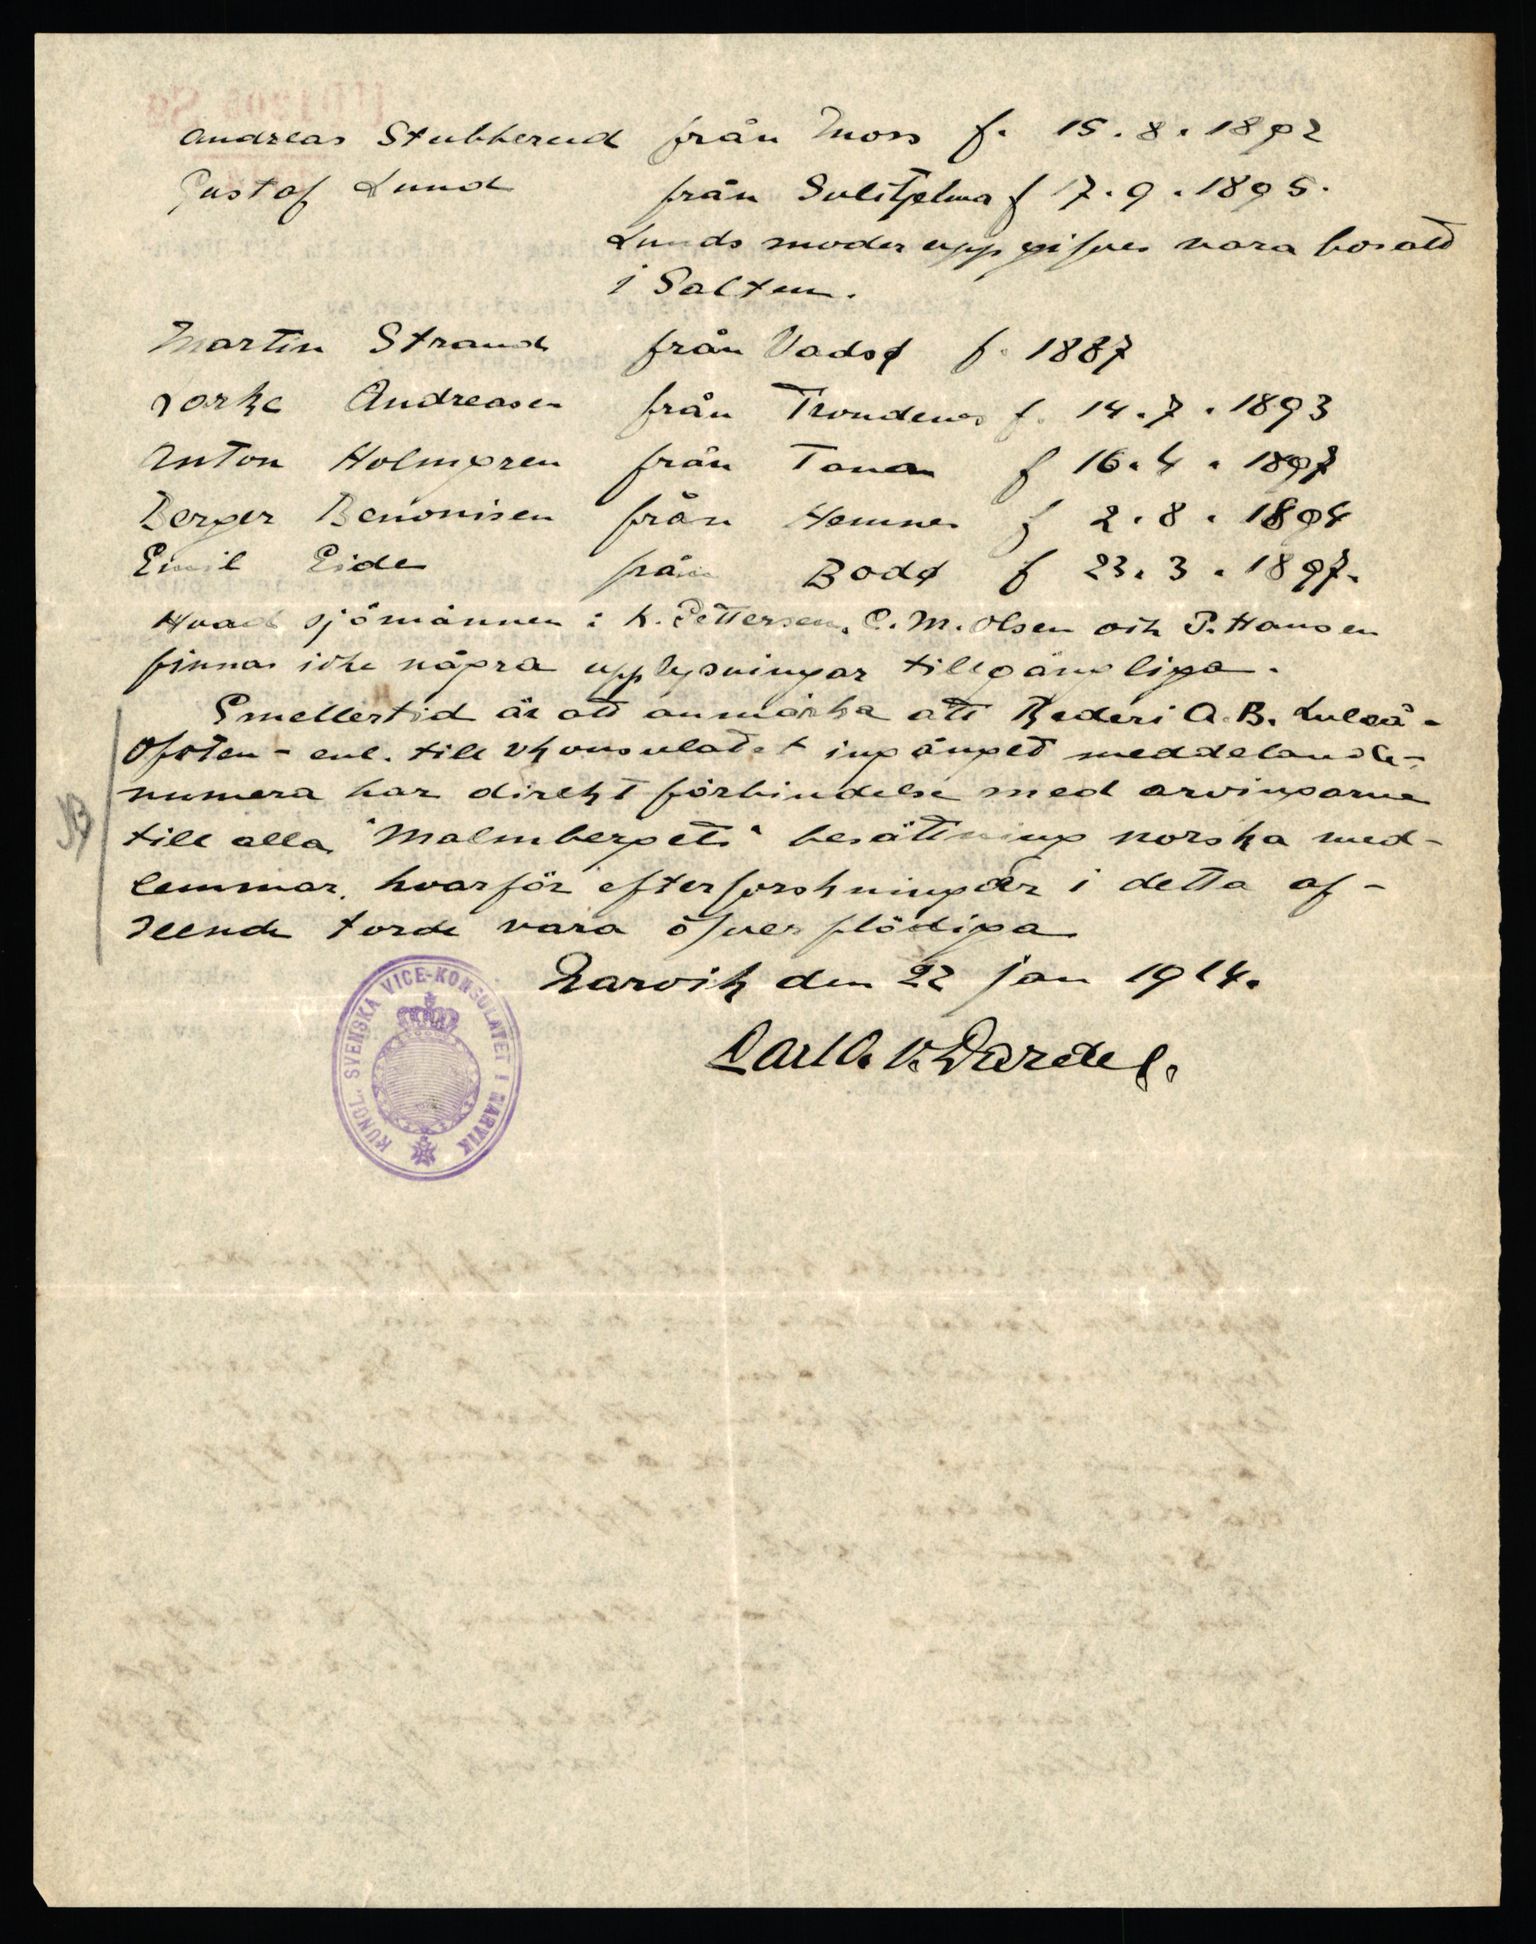 Andreas Stubberud från Moss f. 15.8.1892
Gustaf Lund från Sulitjelma f 17.9.1895.
Lunds moder uppgifves vara bosatt
i Salten.
Martin Strand från Vadsø f. 1887
Andreasen från Trondenes f. 14.7.1893
Anton Holmgren från Tanen f 16.4.1897
Berger Benonisen från Hemnes f 2.8.1894
Emil Eide från Bodø f 23.3.1897.
Hvad sjömännen: K. Pettersen, C. M. Olsen och P. Hansen
finnas icke några upplysningar tillgängliga.
Emellertid är att anmärka att Rederi A.B. Luleå-
Ofoten - enl. till vkonsulatet ingånget meddelande -
numera har direkt förbindelse med arvingarne
till alla "Malmbergets" besättning norska med-
lemmar, hvarför efterforskningar i detta af-
seende torde vara öfverflödiga
NB
Narvik den 22 jan 1914.
Carl O. v. Dardel.
KUNGL. SVENSKA VICE-KONSULATET I NARVIK